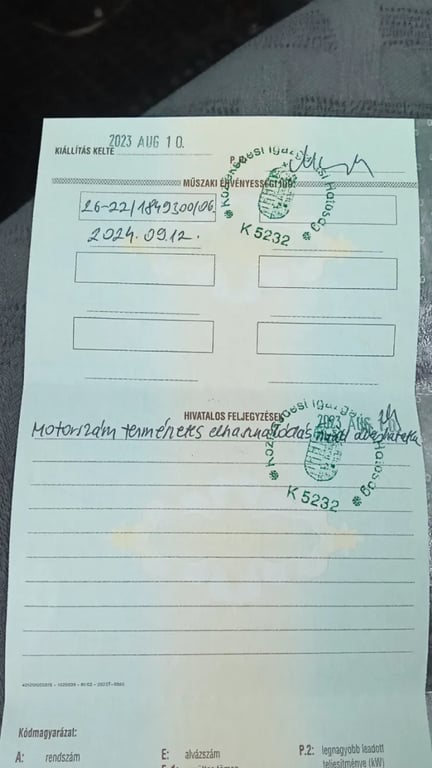 KIÁLLÍTÁS KELTE 2023 AUG 10.
P.H.
MŰSZAKI ÉRVÉNYESSÉGI IDŐ:
Közlekedési Igazgatási Hatóság
K 5232
26-22/1849300/06.
2024.09.12.
HIVATALOS FELJEGYZÉSEK
2023 AUG 10
Motorszám természetes elhasználódás miatt
Közlekedési Igazgatási Hatóság
K 5232
Kódmagyarázat:
A: rendszám
E: alvázszám
P.2: legnagyobb leadott
teljesítménye (kW)